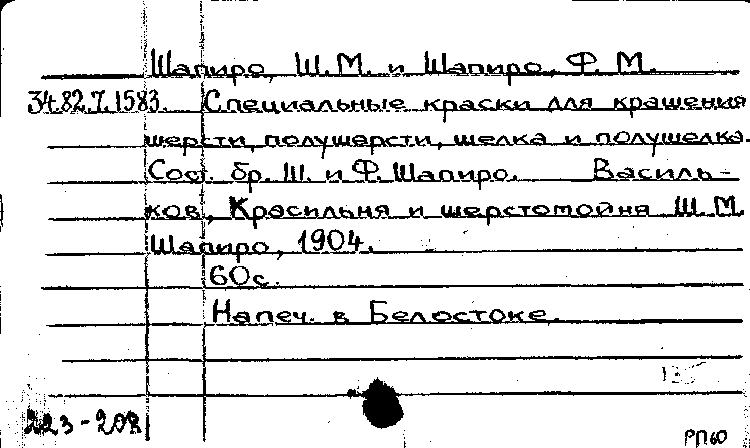 Шапиро, Ш.М. и Шапиро, Ф. М.
34.82.7.1583. Специальные краски для крашения
шерсти, полушерсти, шелка и полушелка.
Сост. бр. Ш. и Ф. Шапиро. Василь-
ков, Красильня и шерстомойня Ш.М.
Шапиро, 1904.
60с.
Напеч. в Белостоке.
223-208
РП60